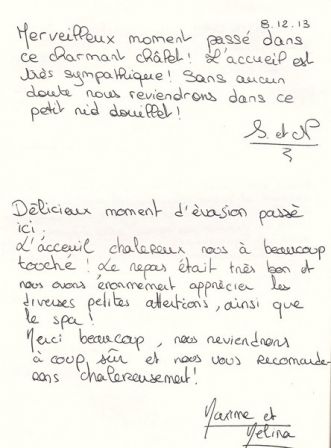 8.12.13
Merveilleux moment passé dans
ce charmant châlet! L'accueil est
très sympathique! Sans aucun
doute nous reviendrons dans ce
petit nid douillet!
S. et N
Délicieux moment d'évasion passé
ici.
L'acceuil chaleureux nous à beaucoup
touché! Le repas était très bon et
nous avons énormement apprécier les
diverses petites attentions, ainsi que
le spa!
Merci beaucoup, nous reviendrons
à coup sûr et nous vous recomande-
rons chaleureusement!
Maxime et
Mélina